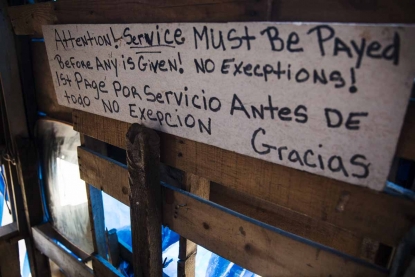 Attention! Service Must Be Payed
Before Any is Given! No Exceptions!
1st Page Por Servicio Antes DE
todo No Exepcion Gracias